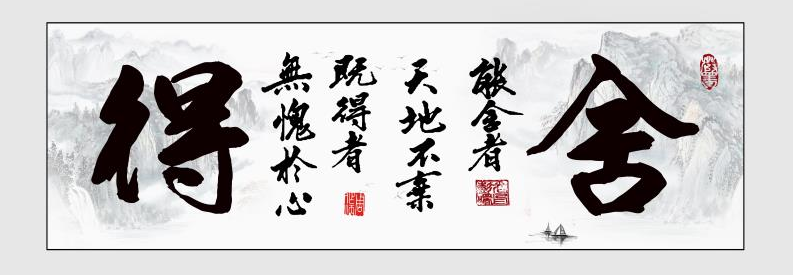 舍
敢舍者
天地不棄
既得者
無愧於心
得